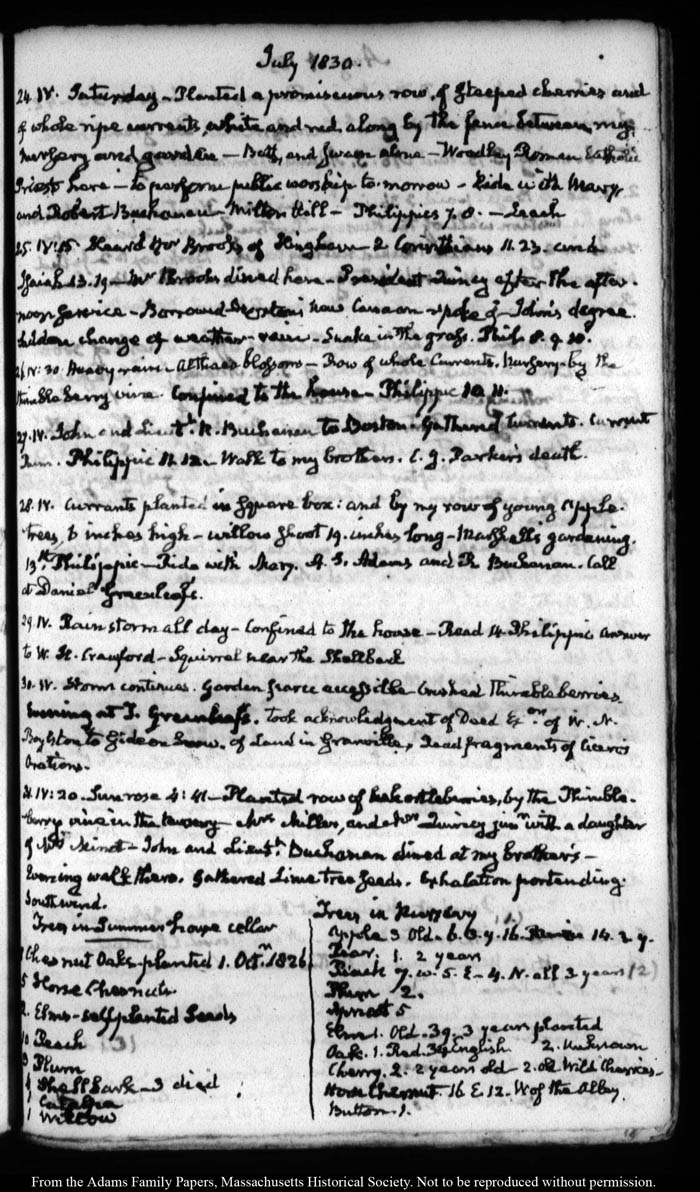 July 1830.
24. IV. Saturday – Planted a promiscuous row, of steeped cherries and
of whole ripe currants white and red, along by the fence between my
nursery and garden – Bath, and swam alone – Woodley Roman Catholic
Priest here – to perform public worship to-morrow – Ride with Mary
and Robert Buchanan – Milton Hill – Philippics 7. 8. – Leach
25. IV:15 Heard Mr Brooks of Hingham 2 Corinthians 11. 23. and
Isaiah 13. 19 – Mr Brooks dined here – President Quincy after the after-
noon service – Borrowed Morton's New Canaan spoke of John's degree.
Sudden change of weather – rain – Snake in the grass. Phil. 8. 9. 10.
26. IV:30 Heavy rain – Althaea blossom – Row of whole Currants. Nursery – by the
thimbleberry vine. Confined to the house – Philippic 10. 11.
27. IV. John and Lieutt. R. Buchanan to Boston – Gathered Currants. Currant
Philippic 11. 12 – Walk to my brothers. C. G. Parker's death.
28. IV. Currants planted in square box: and by my row of young apple-
trees, 6 inches high – willow shoot 19. inches long – Marshall's gardening.
13th. Philippic – Ride with Mary. A. S. Adams and R. Buchanan. Call
at Daniel Greenleaf's.
29. IV. Rain storm all day – Confined to the house – Read 14. Philippic answer
to W. H. Crawford – Squirrel near the Shellbark
30. IV. Storm continues. Garden scarce accessible Crushed thimbleberries
Evening at T. Greenleaf's. Took acknowledgment of Deed Exors of W. N.
Boylston to Gideon Snow. of Land in Granville, Read fragments of Cicero's
Orations.
31. IV:20. Sun rose 4:41 – Planted row of whortleberries, by the Thimble-
berry vine in the nursery – Mrs Miller, and Mrs Quincy junr with a daughter
of Mr Minot – John and Lieutt. Buchanan dined at my brother's –
Evening walk there. Gathered Lime tree seeds. Exhalation portending.
South wind.
Trees in Summer house cellar
Chesnut Oaks planted 1. Octr 1826
5 Horse Chesnuts.
2. Elms – selfplanted Seeds
10 Peach
3 Plum
Shellbark – 3 died
1 Catalpa
1 Willow
Trees in Nursery
Apple 3 Old. 6. 3. y. 16. 14. 2. y.
Pear. 1. 2 years
Peach 7. W. 5. E – 4. N. all 3 years
Plum 2.
Apricot 5
Elm 1. Old. 39. 3 years planted
Oak. 1. Red. 39 English 2. Unknown
Cherry. 2. 2 years old – 2. old Wild Cherries
Horse Chesnut. 16 E. 12. W of the Alley
Button. 1.
From the Adams Family Papers, Massachusetts Historical Society. Not to be reproduced without permission.